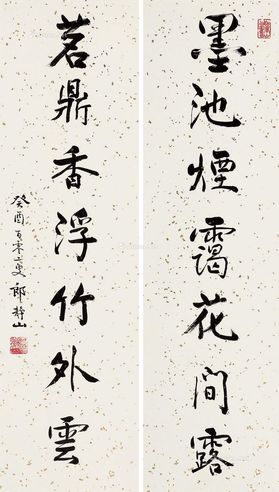 墨池煙靄花間露
茗鼎香浮竹外雲
癸酉百零二叟
郎靜山